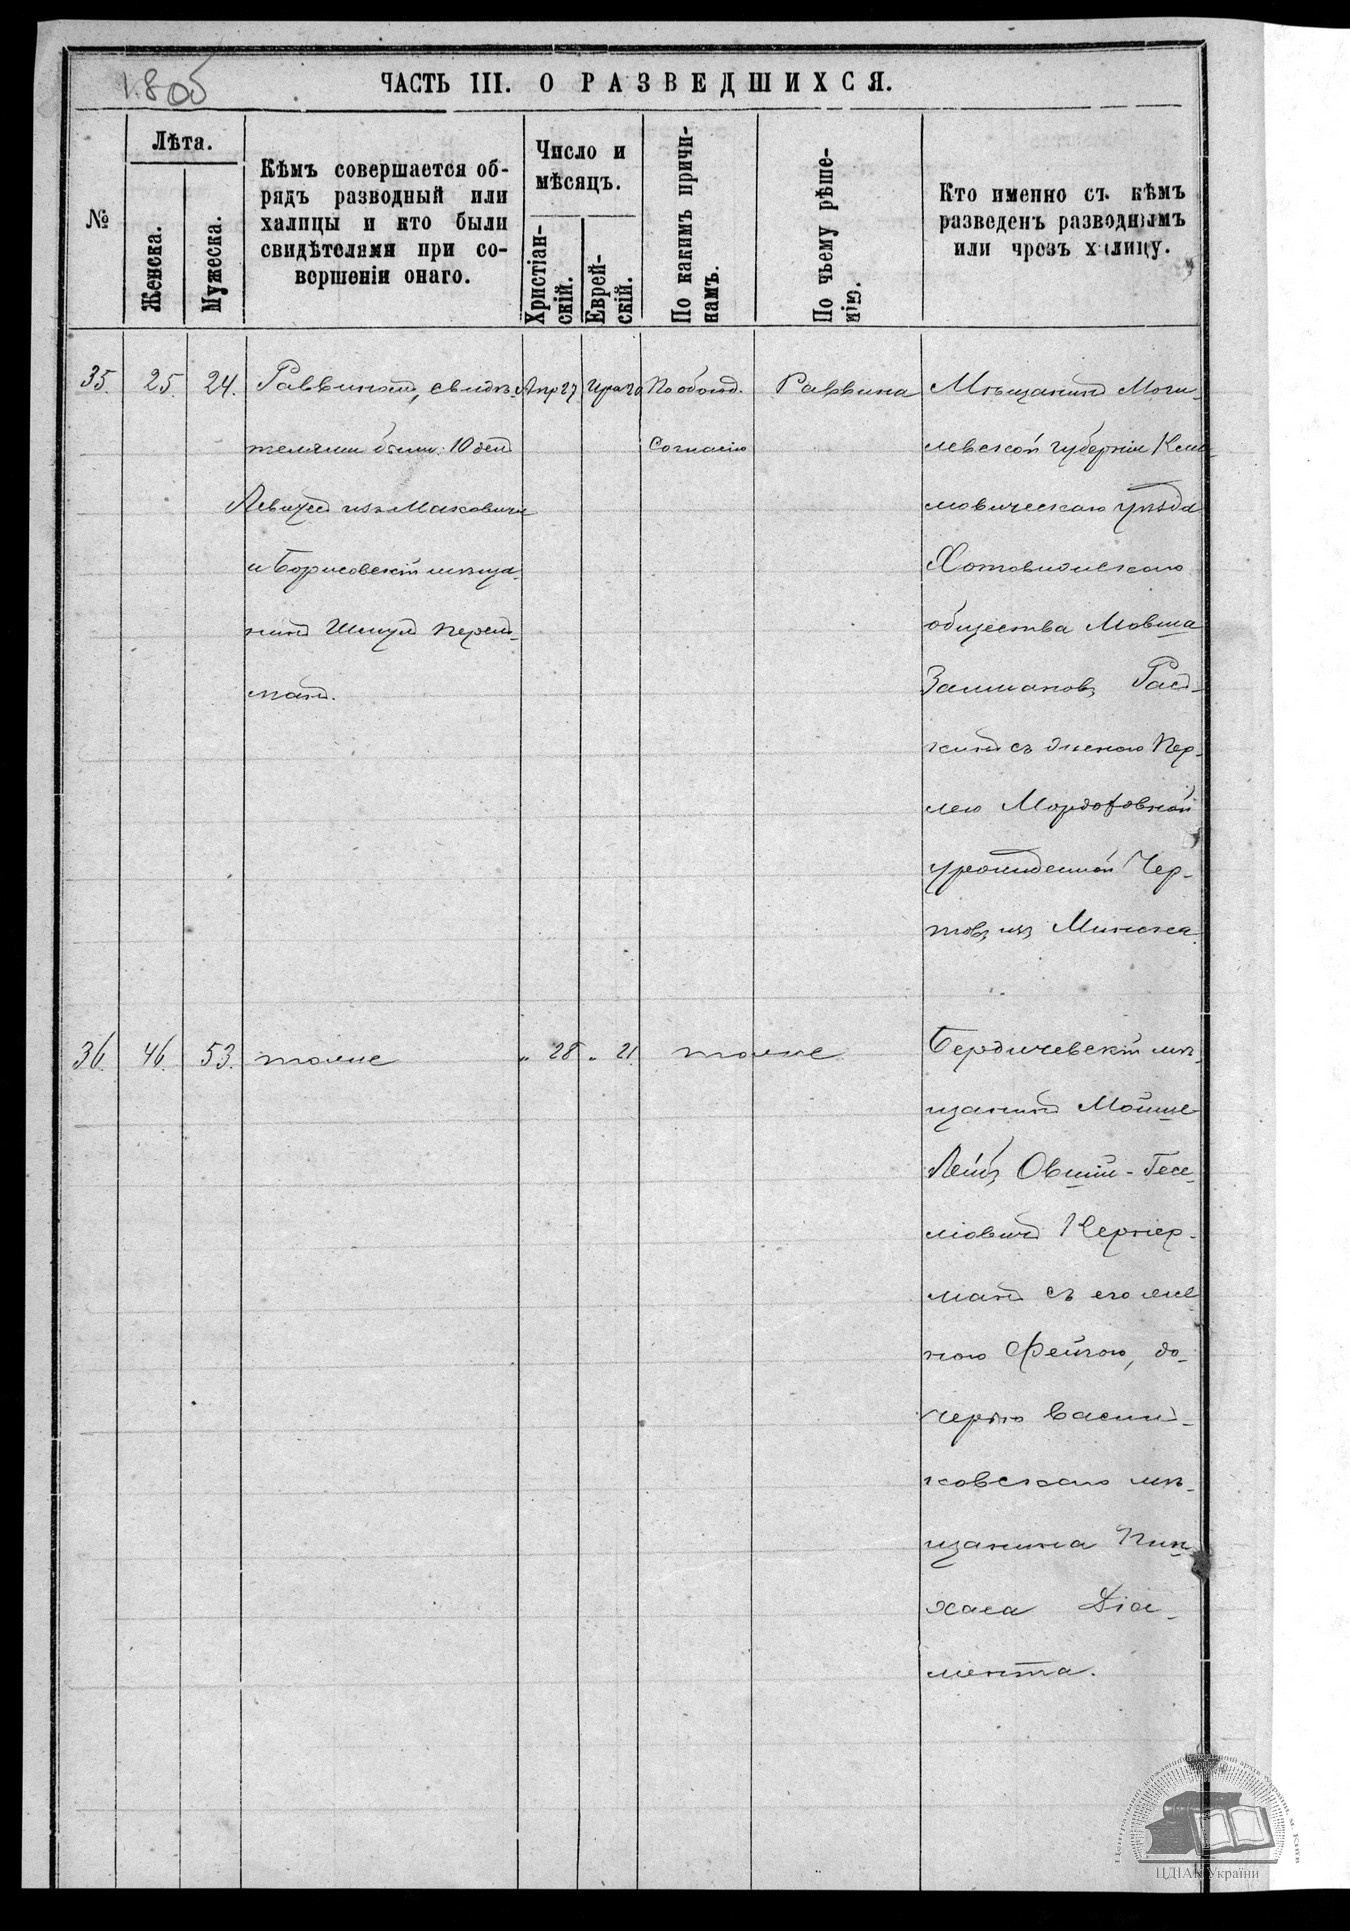 ЧАСТЬ III. О РАЗВЕДШИХСЯ.
№
Лѣта.
Женска.
Мужеска.
Кѣмъ совершается об-
рядъ разводный или
халицы и кто были
свидѣтелями при со-
вершеніи онаго.
Число и
мѣсяцъ.
Христіан-
скій.
Еврей-
скій.
По какимъ причи-
намъ.
По чьему рѣше-
нію.
Кто именно съ кѣмъ
разведенъ разводнымъ
или чрезъ халицу.
35. 25. 24.
Раввиномъ, свидѣ-
телями были:
и Борисовскій мѣща-
нинъ Шмулъ Перель-
манъ.
Апр 27
20
По обоюд.
Согласію
Раввина
Мѣщанинъ Моги-
левской губерніи Кли-
мовическаго уѣзда
общества Мовша
Залмановъ
съ женою Пер-
лею
урожденной Чер-
изъ Минска.
36. 46. 53.
тоже
„ 28
„ 21.
тоже
Бердичевскій мѣ-
щанинъ Мойше
Лейб Овшій-Гесе-
ліовичъ Кернер-
манъ съ его же-
ною Фейгою, до-
черью Василь-
ковскаго мѣ-
щанина Пин-
хаса Діа-
мента.
ЦДІАК України